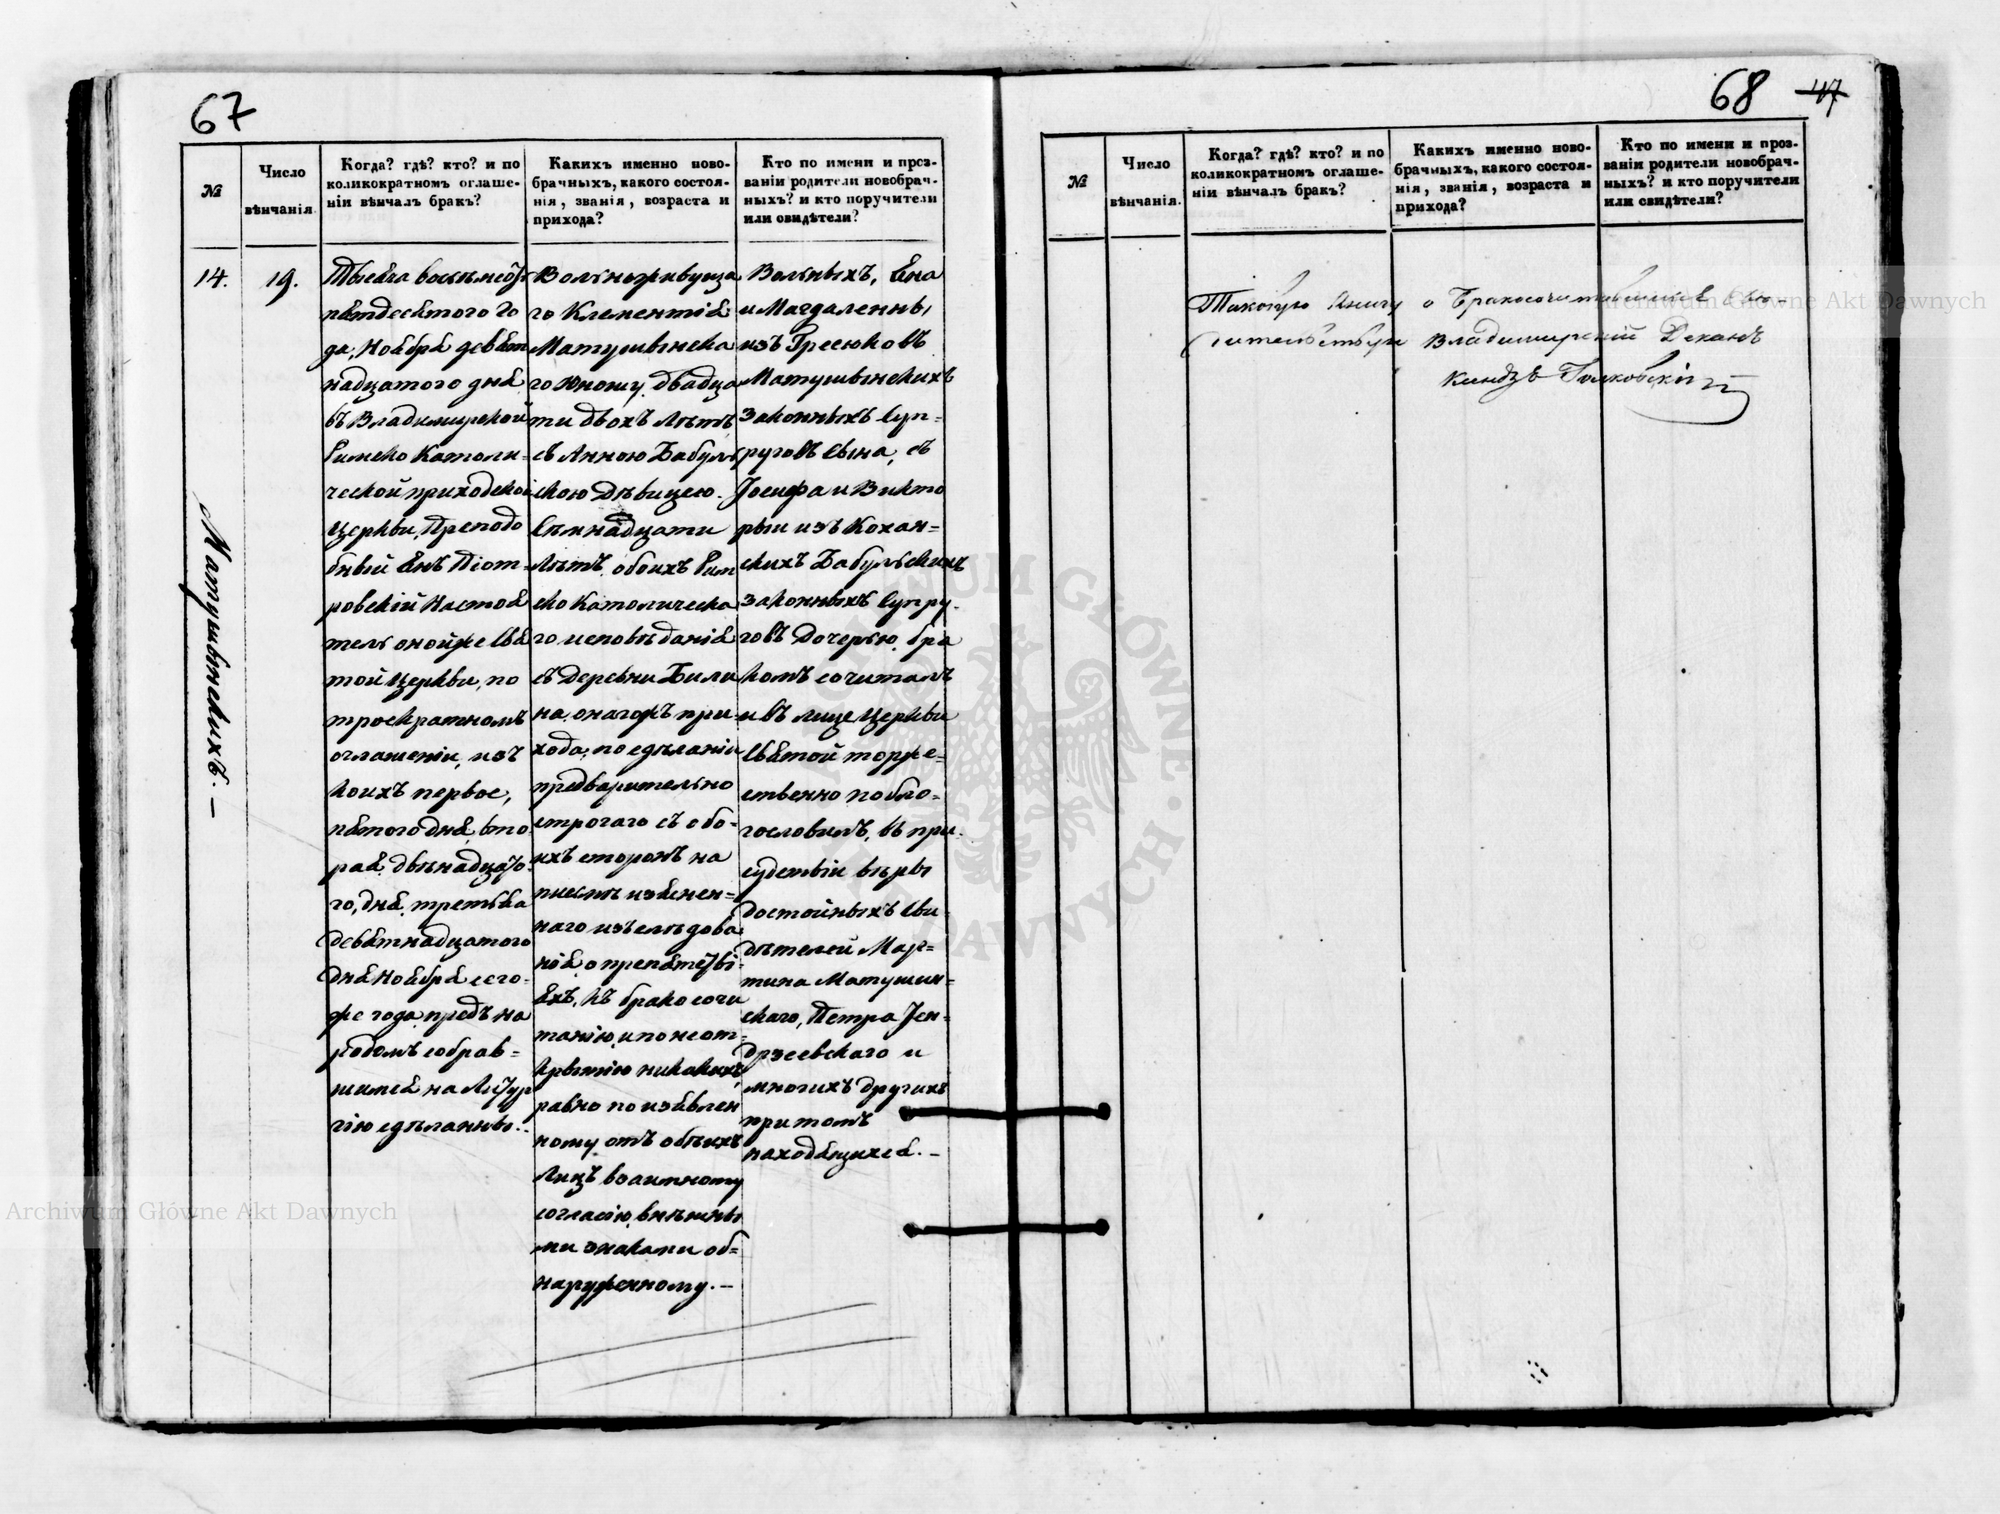 67
№
Число
вѣнчанія.
Когда? гдѣ? кто? и по
коликократномъ оглаше-
ніи вѣнчалъ бракъ?
Какихъ именно ново-
брачныхъ, какого состоя-
нія, званія, возраста и
прихода?
Кто по имени и проз-
ваніи родители новобрач-
ныхъ? и кто поручители
или свидѣтели?
14.
19.
Матушынскихъ. —
Тысяча восьмсотъ
пятдесятого Го
да, Ноября девят
надцатого дня
въ Владимирской
Римско Католи=
ческой приходской
Церкви, Преподо
бный Піот=
ровскій Настоя
тель онойже Свя
той Церкви, по
троекратномъ
оглашеніи, изъ
коихъ первое,
пятого дня, вто
рая, двѣнадцато
го, дня, третьяя
девятнадцатого
дня Ноября сего=
же года, предъ на
родомъ собрав=
шимся на Литур
гію сдѣланны.
Вольноживуща
го Клементія
Матушынска
го Юношу, двадца
ти двохъ лѣтъ
съ Анною Бабуль
скою Дѣвицею.
Семнадцати
Лѣтъ, обоихъ Рим
ско Католическа
го исповѣданія
съ Деревни Били
на, онагожъ при
хода, по сдѣланіи
предварительно
строгаго съ обо=
ихъ сторонъ на
письмѣ изъясен=
наго изслѣдова
нія о препятстві
яхъ, къ бракосочи
танію, и по неот=
крытію никакихъ
равно по изъявлен
ному отъ обѣихъ
Лицъ взаимному
согласію, внѣшны
ми знаками об=
наруженному. —
Вольныхъ,
и Магдалены
изъ Гресюковъ
Матушынскихъ
Законныхъ Суп=
руговъ Сына, съ
Іосифа и Викто
рыи изъ Кохан=
скихъ Бабульскихъ
Законныхъ Супру-
говъ Дочерью, бра
комъ сочиталъ
и въ лице Церкви
Святой торже=
ственно побло=
гословилъ, въ при
судствіи вѣры
достойныхъ Сви
дѣтелей Мар=
тина Матушин=
скаго, Петра Іен=
држеевскаго и
многихъ другихъ
при томъ
находящихся. —
68
47
№
Число
вѣнчанія.
Когда? гдѣ? кто? и по
коликократномъ оглаше-
ніи вѣнчалъ бракъ?
Какихъ именно ново-
брачныхъ, какого состоя-
нія, званія, возраста и
прихода?
Кто по имени и проз-
ваніи родители новобрач-
ныхъ? и кто поручители
или свидѣтели?
Таковую Книгу о Бракосочитавшихся
Владимирскій Деканъ
Ксіондзъ
Archiwum Główne Akt Dawnych
Archiwum Główne Akt Dawnych
ARCHIWUM GŁÓWNE AKT DAWNYCH